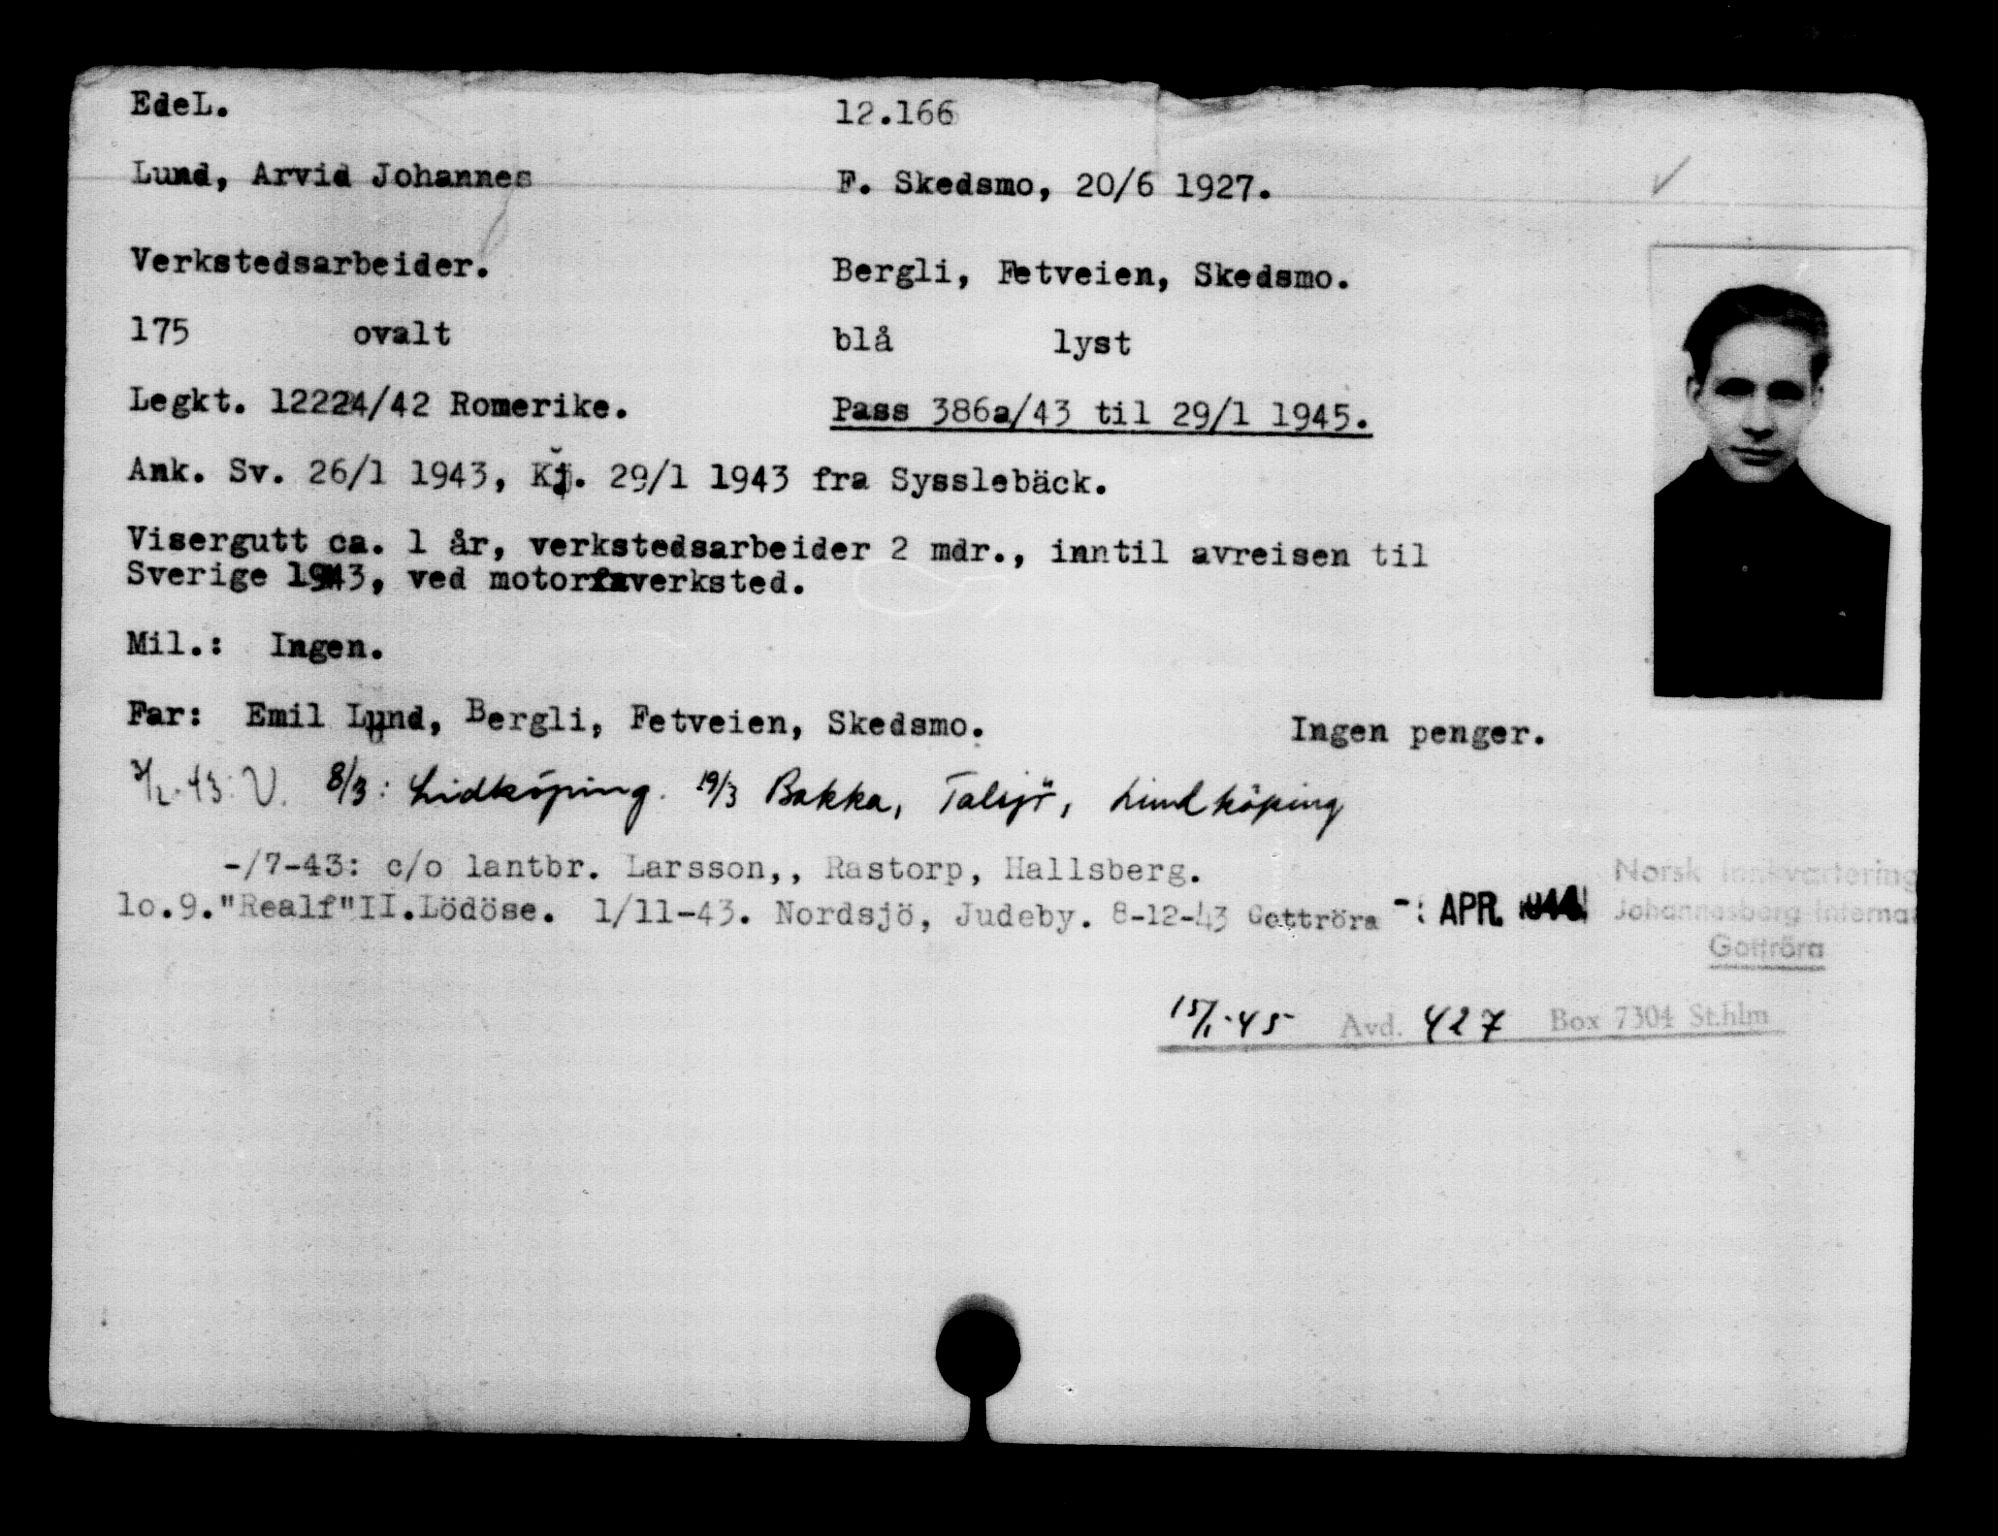 EdeL. 12.166
Lund, Arvid Johannes F. Skedsmo, 20/6 1927.
Verkstedsarbeider. Bergli, Fetveien, Skedsmo.
175 ovalt blå lyst
Legkt. 12224/42 Romerike. Pass 386a/43 til 29/1 1945.
Ank. Sv. 26/1 1943, Kj. 29/1 1943 fra Sysslebäck.
Visergutt ca. 1 år, verkstedsarbeider 2 mdr., inntil avreisen til
Sverige 1943, ved motorverksted.
Mil.: Ingen.
Far: Emil Lund, Bergli, Fetveien, Skedsmo. Ingen penger.
43: V. 8/3: Lidköping. 19/3 Bakka, Talsjö, Lindköping
-/7-43: c/o lantbr. Larsson,, Rastorp, Hallsberg.
lo.9."Realf"II.Lödöse. 1/11-43. Nordsjö, Judeby. 8-12-43 Gottröra - APR. 1944 Norsk Innkvartering
Johannesberg Interna
Gottröra
15/1-45 Avd. 427 Box 7304 St.hlm